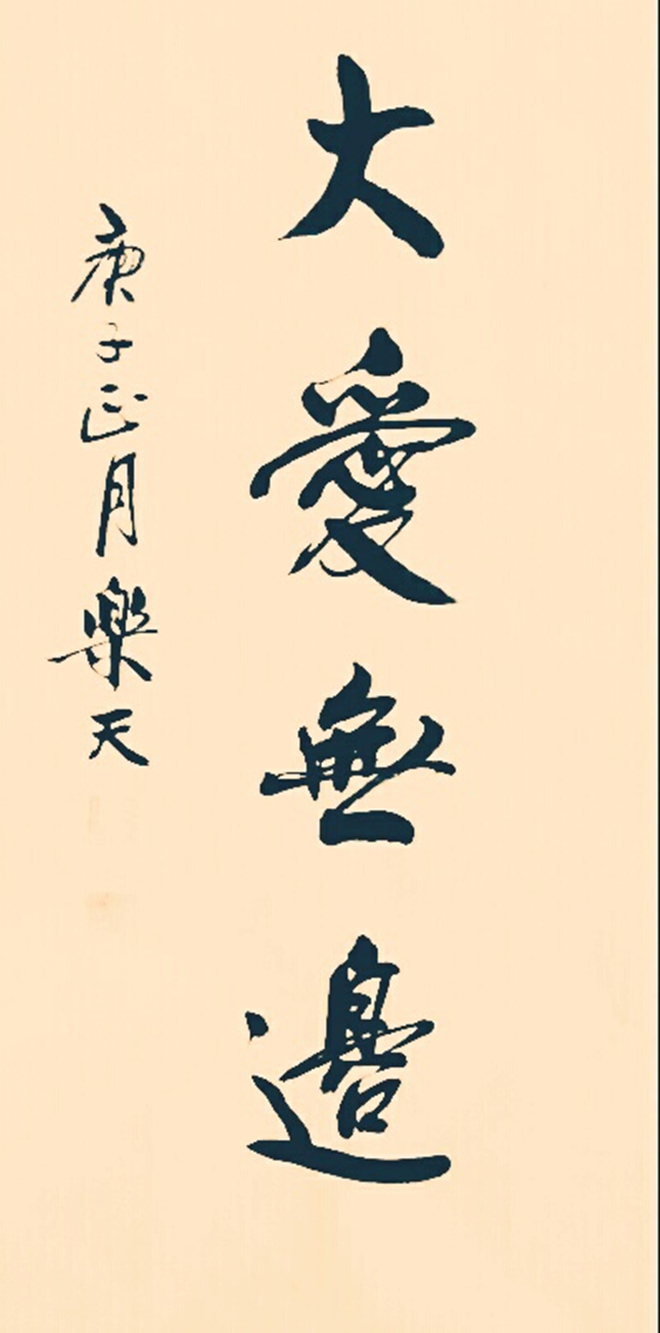 大愛無邊
庚子正月樂天